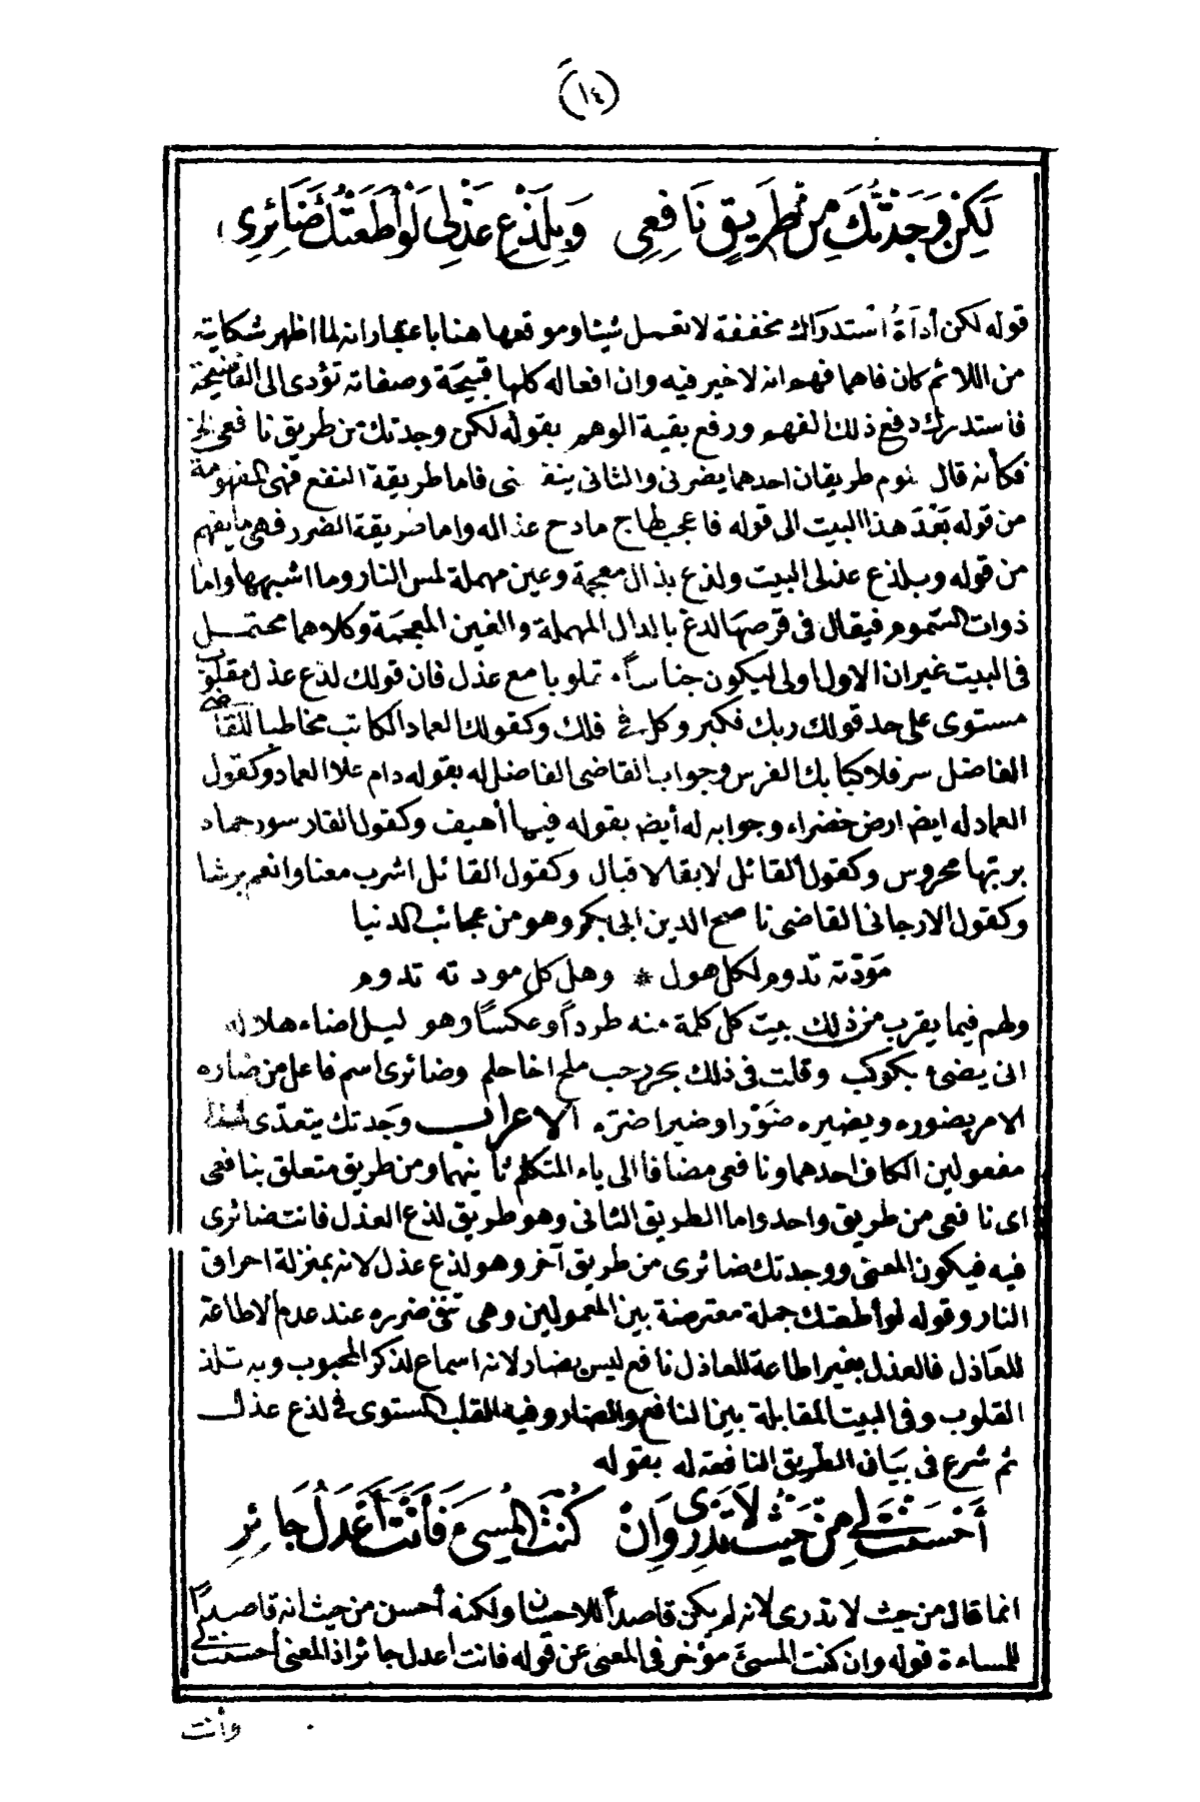 (١٤)
لَكِنْ وَجَدْتُكَ مِنْ طَرِيقٍ نَافِعِي وَبِلَذْعِ عَذْلِي لَوْ أَطَعْتُكَ ضَائِرِي
قوله لكن أداةُ استدراك مخففة لا تعمل شيئا وموقعها هنا باعتبار انه لما اظهر شكايته
من اللائم كان فاهما فهم انه لا خير فيه وان افعاله كلها قبيحة وصفاته تؤدى الى الفضيحة
فاستدرك دفع ذلك الفهم ورفع بقية الوهم بقوله لكن وجدتك من طريق نافعى الخ
فكأنه قال لوم طريقان احدهما يضرنى والثانى ينفعنى فاما طريقة النفع فهى المفهومة
من قوله بَعْدَ هذا البيت الى قوله فاعجب لهاج مادح عذاله واما طريقة الضرر فهى ما يفهم
من قوله وبلذع عذلى البيت ولذع بذال معجمة وعين مهملة لمس النار وما اشبهها واما
ذوات السّموم فيقال فى قرصها لدغ بالدال المهملة والغين المعجمة وكلاهما محتمل
فى البيت غير ان الاول اولى ليكون جناساً مقلوبا مع عذل فان قولك لذع عذل مقلوب
مستوى على حد قولك ربك فكبر وكل فى فلك وكقول العماد الكاتب مخاطبا للقاضى
الفاضل سر فلا كبا بك الفرس وجواب القاضى الفاضل له بقوله دام علا العماد وكقول
العماد له ايضا ارض خضراء وجوابه له أيضا بقوله فيها أهيف وكقول القائل سور حماه
بربها محروس وكقول القائل لا بقا للاقبال وكقول القائل اشرب معنا وانعم برشا
وكقول الارجانى القاضى ناصح الدين ابى بكر وهو من عجائب الدنيا
مَوَدّته تدوم لكل هول * وهل كل مودته تدوم
ولهم فيما يقرب من ذلك بيت كل كلمة منه طرداً وعكسًا وهو ليل اضاء هلاله
انى يضئ بكوكب وقلت فى ذلك بحر رحب ملح اخا حلم وضائرى اسم فاعل من ضاره
الامر يضوره ويضيره ضَوْرا وضيرا ضرّه الاعراب وجدتك يتعدّى
مفعولين الكاف احدهما ونافعى مضافا الى ياء المتكلم ثانيهما ومن طريق متعلق بنافعى
اى نافعى من طريق واحد واما الطريق الثانى وهو طريق لذع العذل فانت ضائرى
فيه فيكون المعنى ووجدتك ضائرى من طريق آخر وهو لذع عذل لانه بمنزلة احراق
النار وقوله لو أطعتك جملة معترضة بين المعمولين وهى تنفى ضرره عند عدم الاطاعة
للعاذل فالعذل بغير اطاعة للعاذل نافع ليس بضار لانه اسماع لذكر المحبوب وبه تلذ
القلوب وفى البيت المقابلة بين النافع والضار وفيه القلب المستوى فى لذع عذل
ثم شرع فى بيان الطريق النافعة له بقوله
أَحْسَنْتَ لِي مِنْ حَيْثُ لَا تَدْرِي وَإِنْ كُنْتَ الْمُسِيءَ فَأَنْتَ أَعْدَلُ جَائِرِ
انما قال من حيث لا تدرى لانه لم يكن قاصداً للاحسان ولكنه أحسن من حيث انه قاصداً
للمساءة قوله وان كنت المسئَ مؤخر فى المعنى عن قوله فانت اعدل جائر اذ المعنى أحسنت لى
وأنت